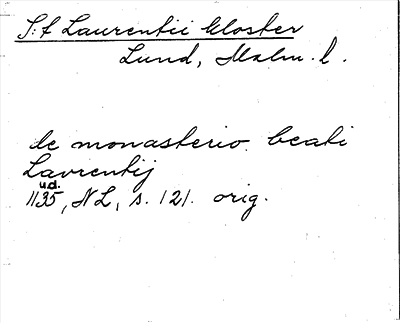 S:t Laurentii kloster
Lund, Malm. l.
de monasterio beati
Lavrentij
u.d.
1135, NL, s. 121. orig.